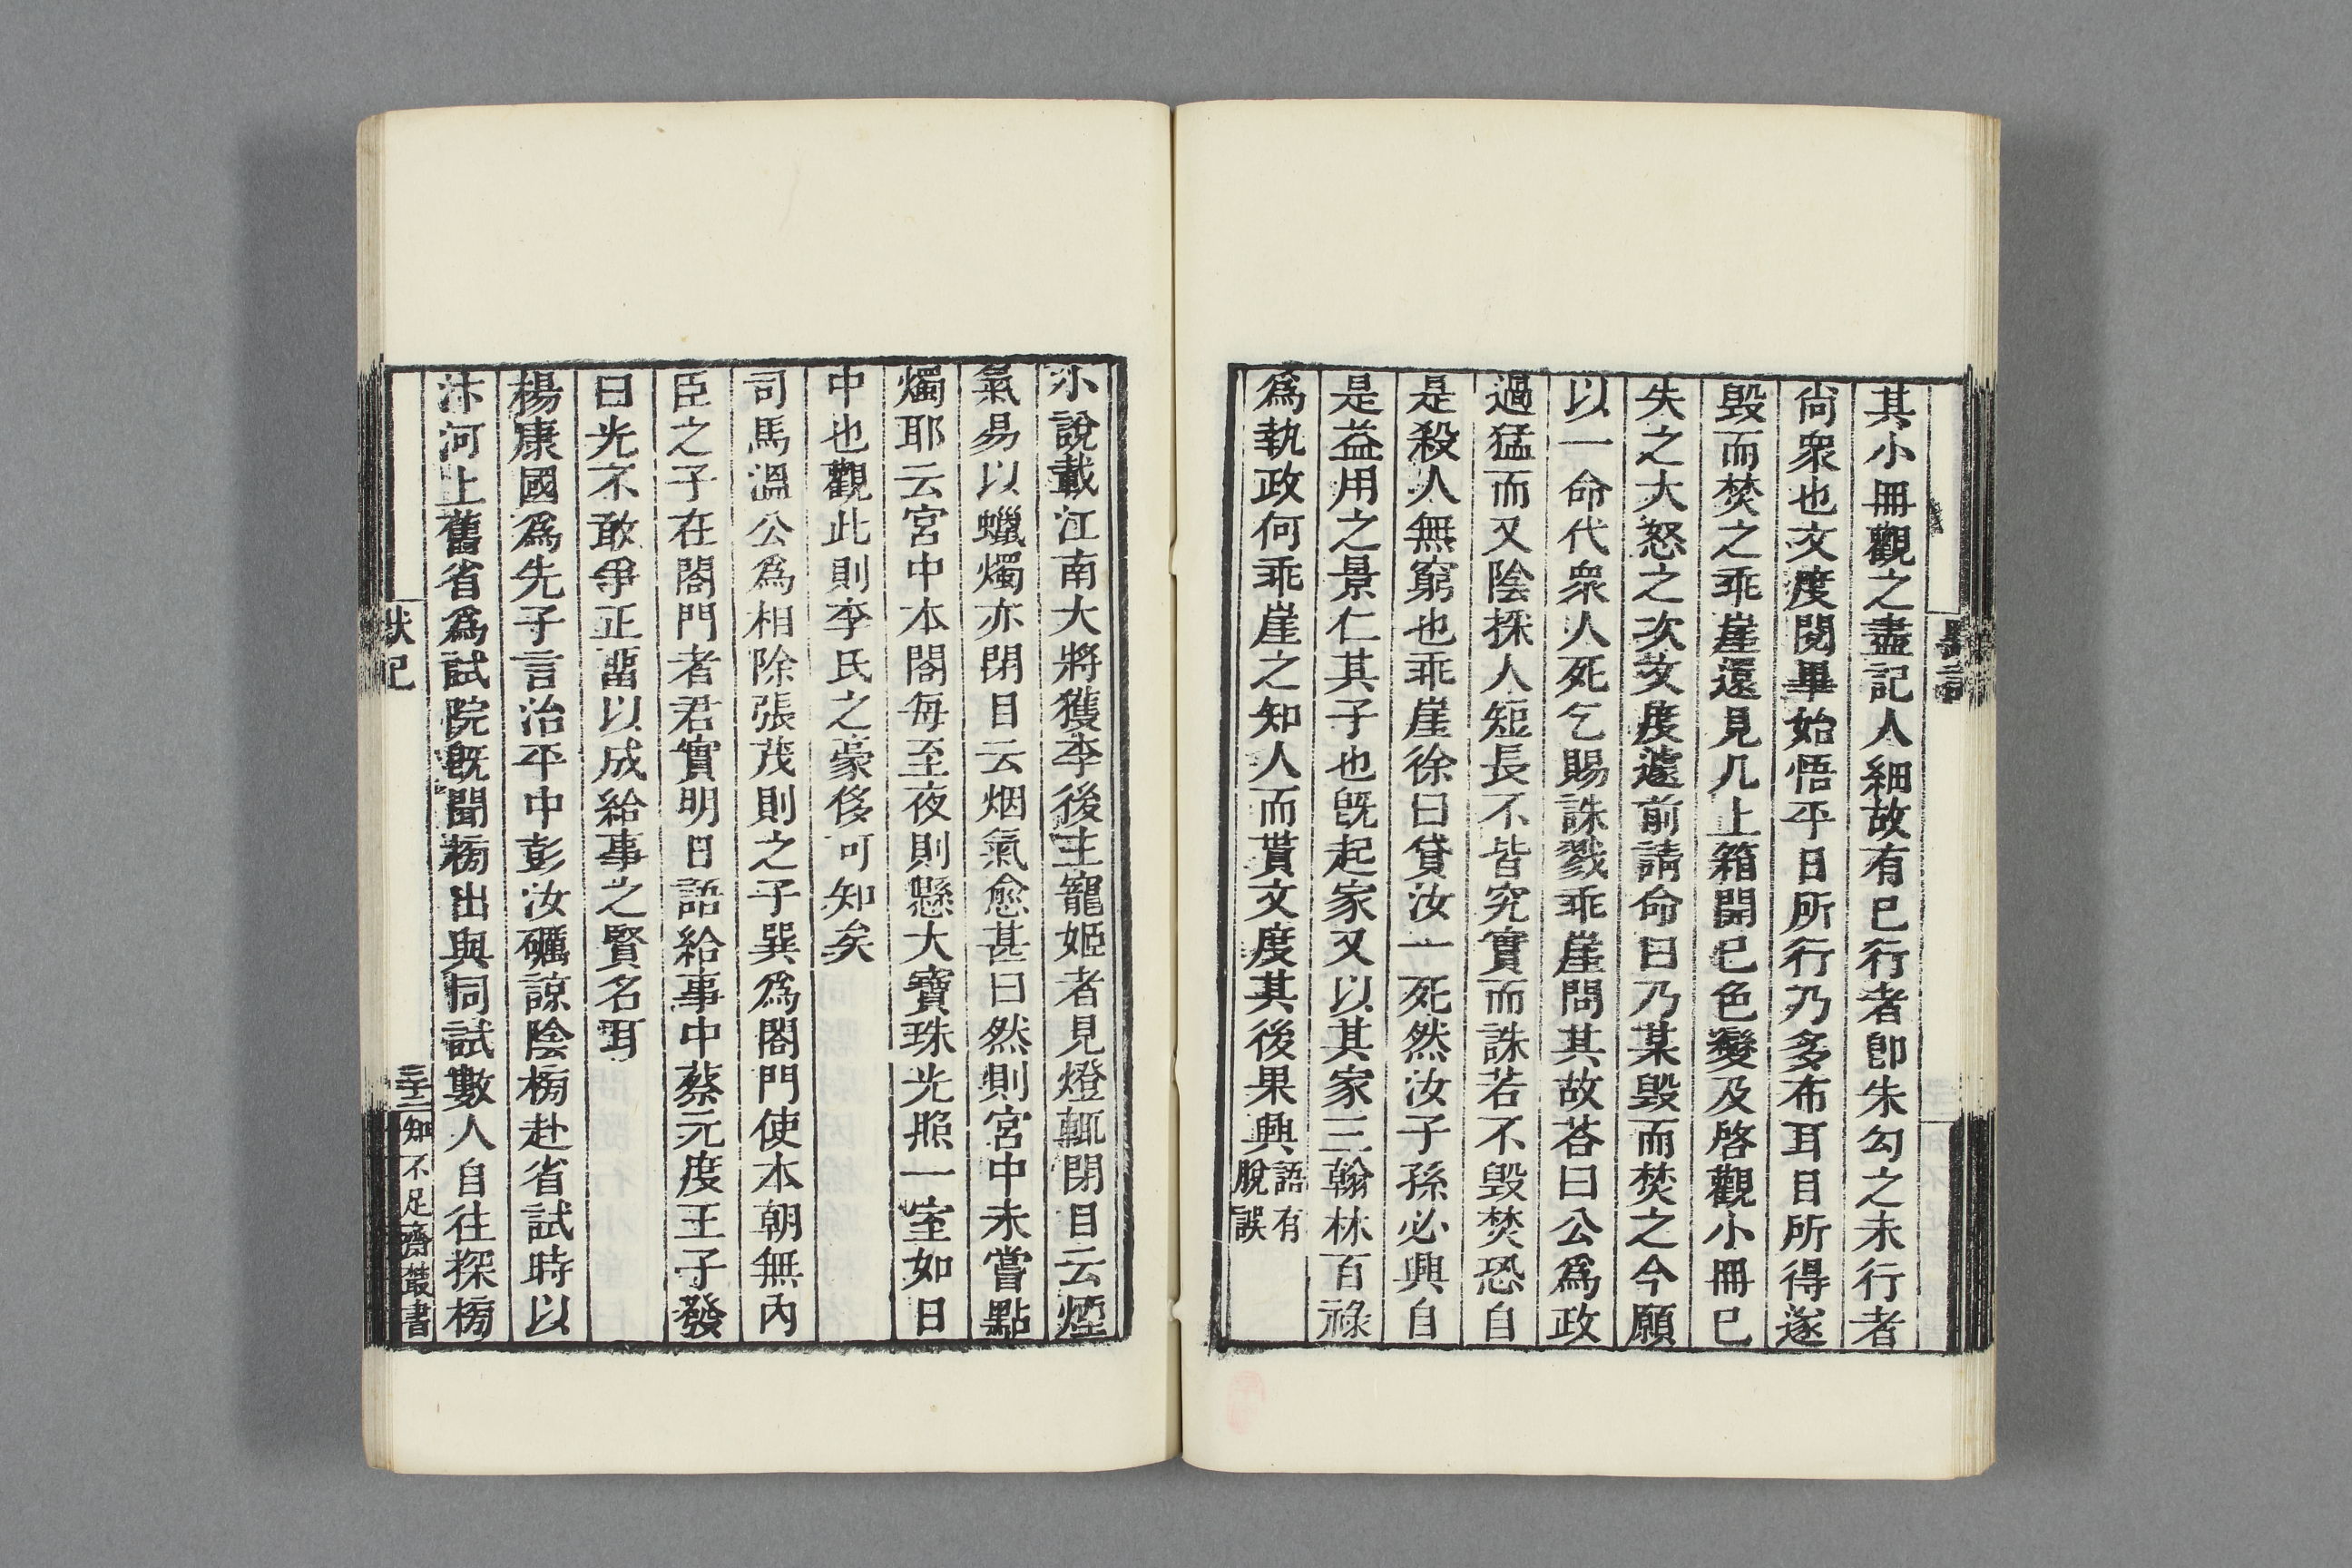 其小冊觀之盡記人細故有已行者卽朱勾之未行者
尙衆也文度閱畢始悟平日所行乃多布耳目所得遂
毀而焚之乖崖還見几上箱開已色變及啓觀小冊已
失之大怒之次文度遽前請命曰乃某毀而焚之今願
以一命代衆人死乞賜誅戮乖崖問其故荅曰公爲政
過猛而又陰採人短長不皆究實而誅若不毀焚恐自
是殺人無窮也乖崖徐曰貸汝一死然汝子孫必興自
是益用之景仁其子也旣起家又以其家三翰林百祿
爲執政何乖崖之知人而貰文度其後果興語有脫誤
小說載江南大將獲李後主寵姬者見燈輒閉目云煙
氣易以蠟燭亦閉目云烟氣愈甚曰然則宮中未嘗點
燭耶云宮中本閣每至夜則懸大寶珠光照一室如日
中也觀此則李氏之豪侈可知矣
司馬溫公爲相除張茂則之子巽爲閤門使本朝無內
臣之子在閤門者君實明日語給事中蔡元度王子發
曰光不敢爭正畱以成給事之賢名耳
楊康國爲先子言治平中彭汝礪諒陰榜赴省試時以
汴河上舊省爲試院旣聞榜出與同試數人自往探榜
默記
三十二
知不足齋叢書